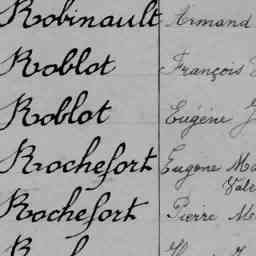 Robinault Armand
Roblot François
Roblot Eugène
Rochefort Eugène
Rochefort Pierre